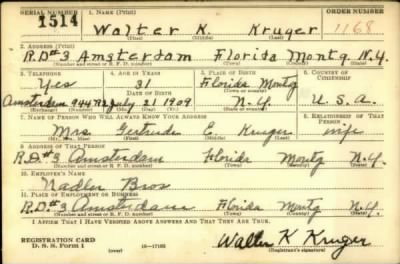 SERIAL NUMBER 1. NAME (Print) ORDER NUMBER
1514 Walter K. Kruger 1168
(First) (Middle) (Last)
2. ADDRESS (Print)
R.D#3 Amsterdam Florida Montg N.Y.
(Number and street or R. F. D. number) (Town) (County) (State)
3. TELEPHONE 4. AGE IN YEARS 5. PLACE OF BIRTH 6. COUNTRY OF CITIZENSHIP
Yes 31 Florida Montg
DATE OF BIRTH (Town or county)
Amsterdam July 21 1909 N.Y. U.S.A.
(Exchange) (Number) (Mo.) (Day) (Yr.) (State or country)
7. NAME OF PERSON WHO WILL ALWAYS KNOW YOUR ADDRESS 8. RELATIONSHIP OF THAT PERSON
Mrs. Gertrude E. Kruger wife
(Mr., Mrs., Miss) (First) (Middle) (Last)
9. ADDRESS OF THAT PERSON
R.D.#3 Amsterdam Florida Montg N.Y.
(Number and street or R. F. D. number) (Town) (County) (State)
10. EMPLOYER'S NAME
Nadler Bros
11. PLACE OF EMPLOYMENT OR BUSINESS
R.D.#3 Amsterdam Florida Montg N.Y.
(Number and street or R. F. D. number) (Town) (County) (State)
I AFFIRM THAT I HAVE VERIFIED ABOVE ANSWERS AND THAT THEY ARE TRUE.
REGISTRATION CARD
D. S. S. Form 1 (over) 16—17105 Walter K Kruger
(Registrant's signature)